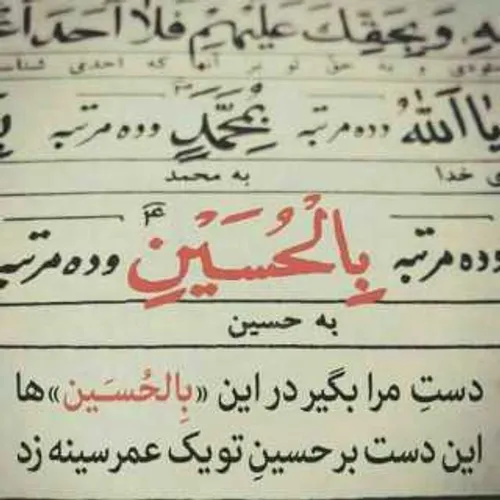 هِ. وَبِحَقِّكَ عَلَيْهِمْ فَلا اَحَدَ
و به حق تو بر آنها که احدی شناسا
يا اَللهُ وده مرتبه بِمُحَمَّدٍ وده مرتبه
ی خدا به محمد
وده مرتبه بِالْحُسَيْنِ وده مرتبه
به حسین
دستِ مرا بگیر در این «بِالحُسَین»ها
این دست بر حسینِ تو یک عمر سینه زد